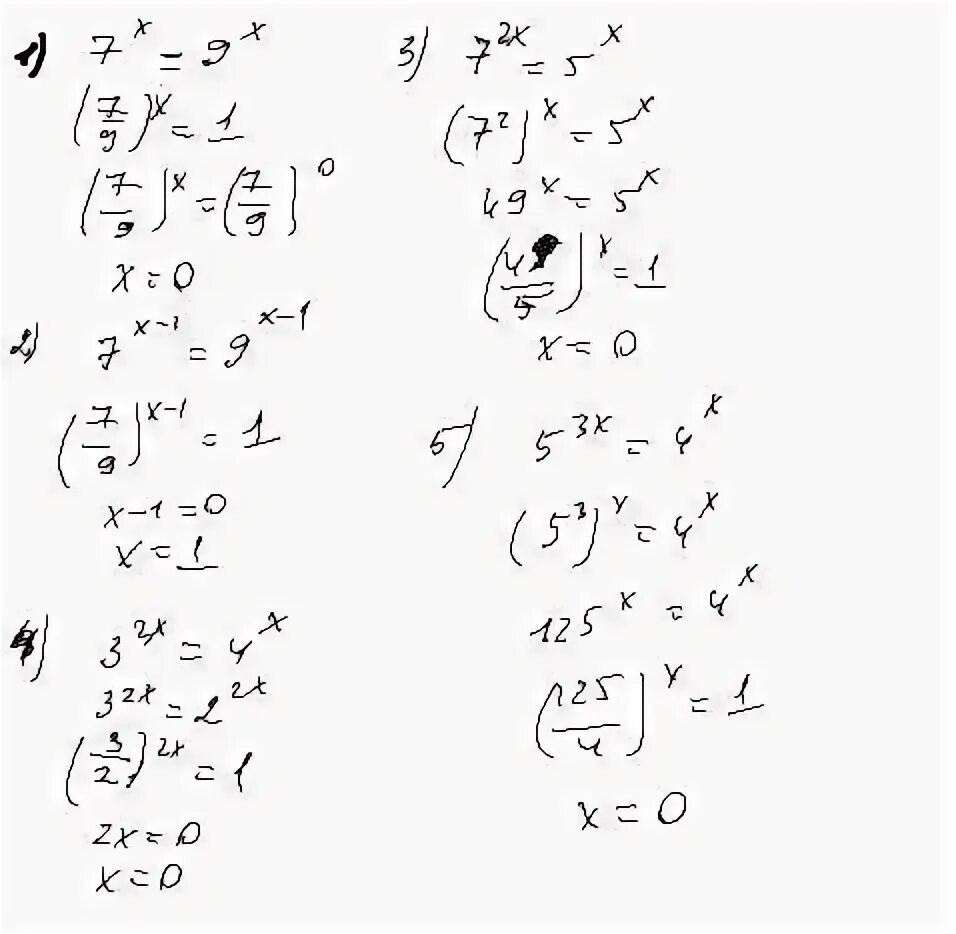 1) 7^x = 9^x
(7/9)^x = 1
(7/9)^x = (7/9)^0
x = 0
2) 7^(x-1) = 9^(x-1)
(7/9)^(x-1) = 1
x-1 = 0
x = 1
4) 3^(2x) = 4^x
3^(2x) = 2^(2x)
(3/2)^(2x) = 1
2x = 0
x = 0
3) 7^(2x) = 5^x
(7^2)^x = 5^x
49^x = 5^x
(49/5)^x = 1
x = 0
5) 5^(3x) = 4^x
(5^3)^x = 4^x
125^x = 4^x
(125/4)^x = 1
x = 0